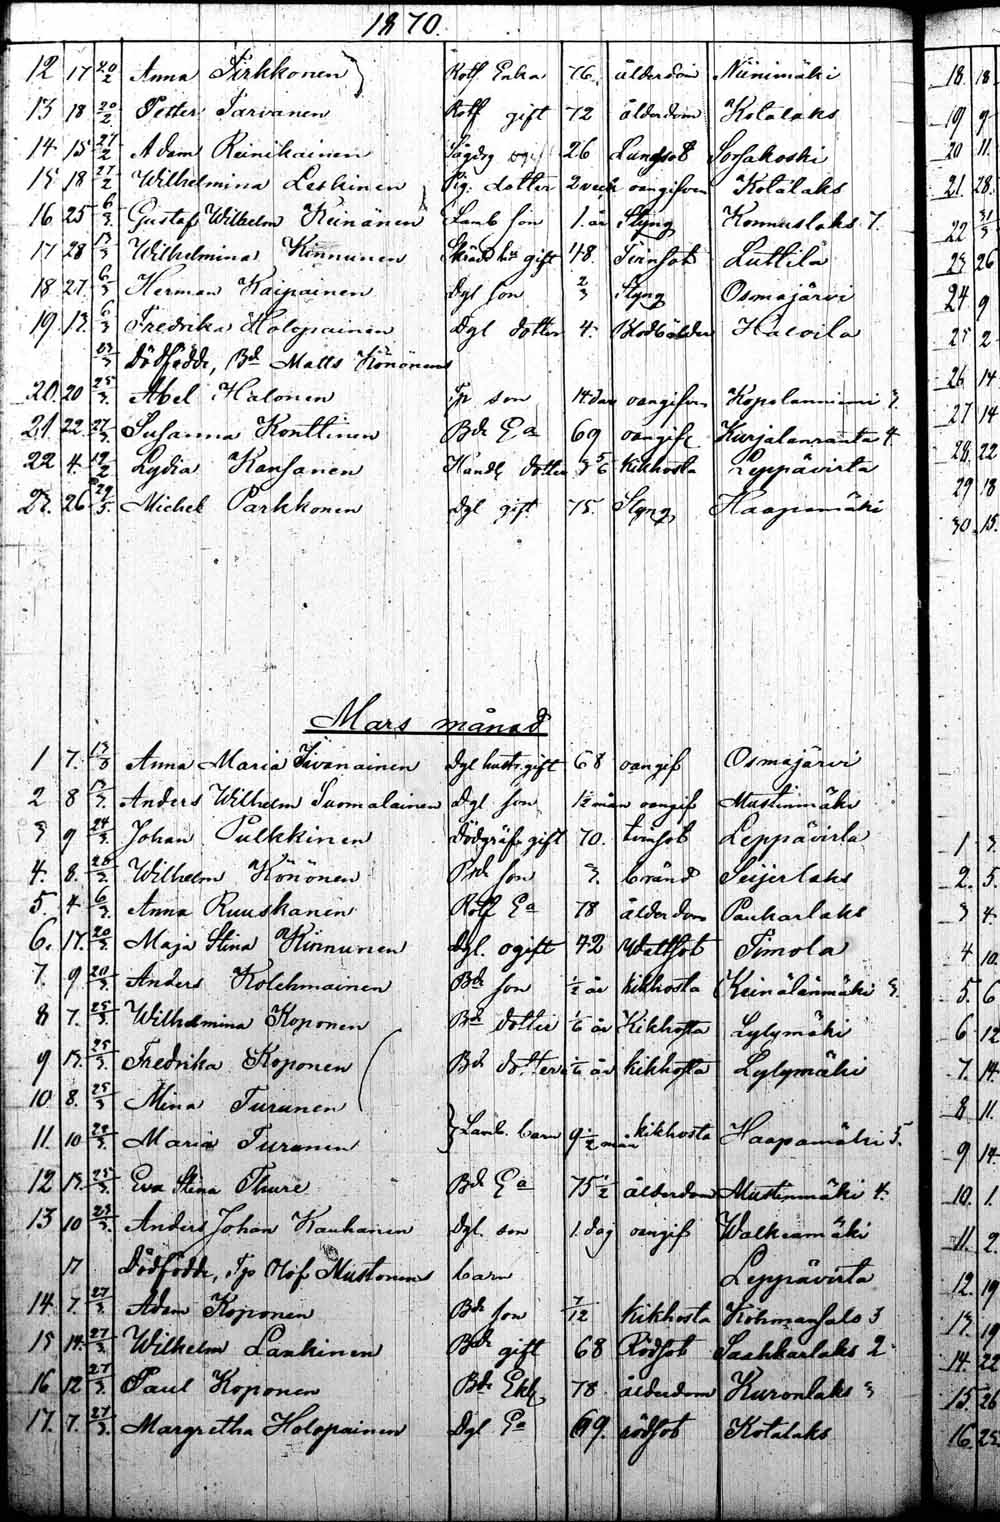 1870.
12 17 20/2 Anna Tirkkonen Rotf Enka 76 ålderdom Niinimäki
13 18 20/2 Petter Tarvanen Rotf gift 72 ålderdom Kotalaks
14 15 27/2 Adam Reinikainen 26 Lungsot Sorsakoski
15 18 27/2 Wilhelmina Leskinen Pig. dotter 2 veck oangifven Kotalaks
16 25 6/3 Gustaf Wilhelm Keinänen Lanb son 1. år Styng Konnuslaks 7.
17 28 13/3 Wilhelmina Kinnunen gift 48. Tvinsot Luttila
18 27. 6/3 Herman Kaipainen Dgl son 2/3 Styng Osmajärvi
19 13. 6/3 Fredrika Holopainen Dgl dotter 4. Halvila
Dödfödde, Bd Matts Könönens
20. 20 25/3. Abel Halonen Tp son 14 dar oangifven 3.
21 22. 27/3 Susanna Konttinen Bde Ea 69 oangif Kurjalanranta 4.
22 4. 19/2 Lydia Kansanen Handl dotter 3 5/6 kikhosta Leppävirta
23. 26 Michel Parkkonen Dgl gift 75. Styng Haapamäki
Mars månad
1 7. 13/3 Anna Maria Iivanainen Dgl hustr. gift 68 oangif Osmajärvi
2 8 13/3 Anders Wilhelm Suomalainen Dgl. son 1½ mån oangif Mustinmäki
3 9 24/3 Johan Pulkkinen Dödgräf gift 70. tvinsot Leppävirta
4. 8. 20/3. Wilhelm Könönen Bde son 3. bränd Seijerlaks
5 4 6/3. Anna Ruuskanen Rotf Ea 78 ålderdom Paukarlaks
6. 17. 20/3. Maja Stina Kinnunen Dgl. ogift 42 Wattsot Timola
7. 9. 20/3. Anders Kolehmainen Bde son ½ år kikhosta Keinälänmäki 3.
8 7. 25/3. Wilhelmina Koponen Bde dotter 1/6 år Kikhosta Lylymäki
9 13. 25/3. Fredrika Koponen Bde dotter 1/6 år kikhosta Lylymäki
10 8. 25/3 Mina Turunen
11. 10 Maria Turunen Lanb. barn 9 ½ mån kikhosta Haapamäki 5.
12 13. 25/3. Eva Stina Thure Bde Ea 75½ ålderdom Mustinmäki 4.
13 10 Anders Johan Kauhanen Dgl. son 1. dag oangif Walkeamäki
17 Dödfödde, Tp Olof Mustonens barn Leppävirta
14. 7. 27/3 Adam Koponen Bde son 7/12 kikhosta Kohmansalo 3
15 14. 27/3 Wilhelm Lankinen Bde gift 68 Rödsot Saahkarlaks 2
16 12 27/3 Paul Koponen Bde Ekl 78 ålderdom Kuronlaks 3
17. 7. 27/3. Margretha Holopainen Dgl Ea 69. rödsot Kotalaks